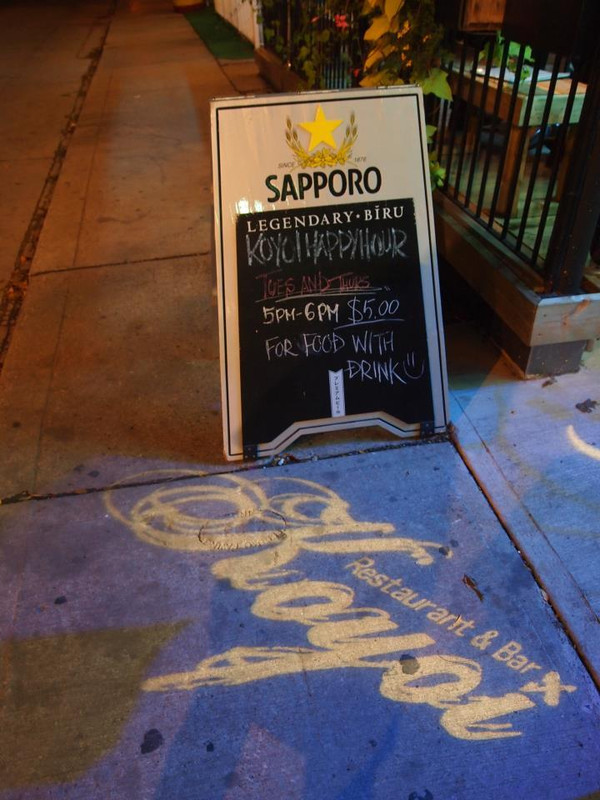 SINCE 1876
SAPPORO
LEGENDARY · BĪRU
KOYOI HAPPY HOUR
TUES AND THURS
5PM-6PM $5.00
FOR FOOD WITH
DRINK
Koyoi
Restaurant & Bar